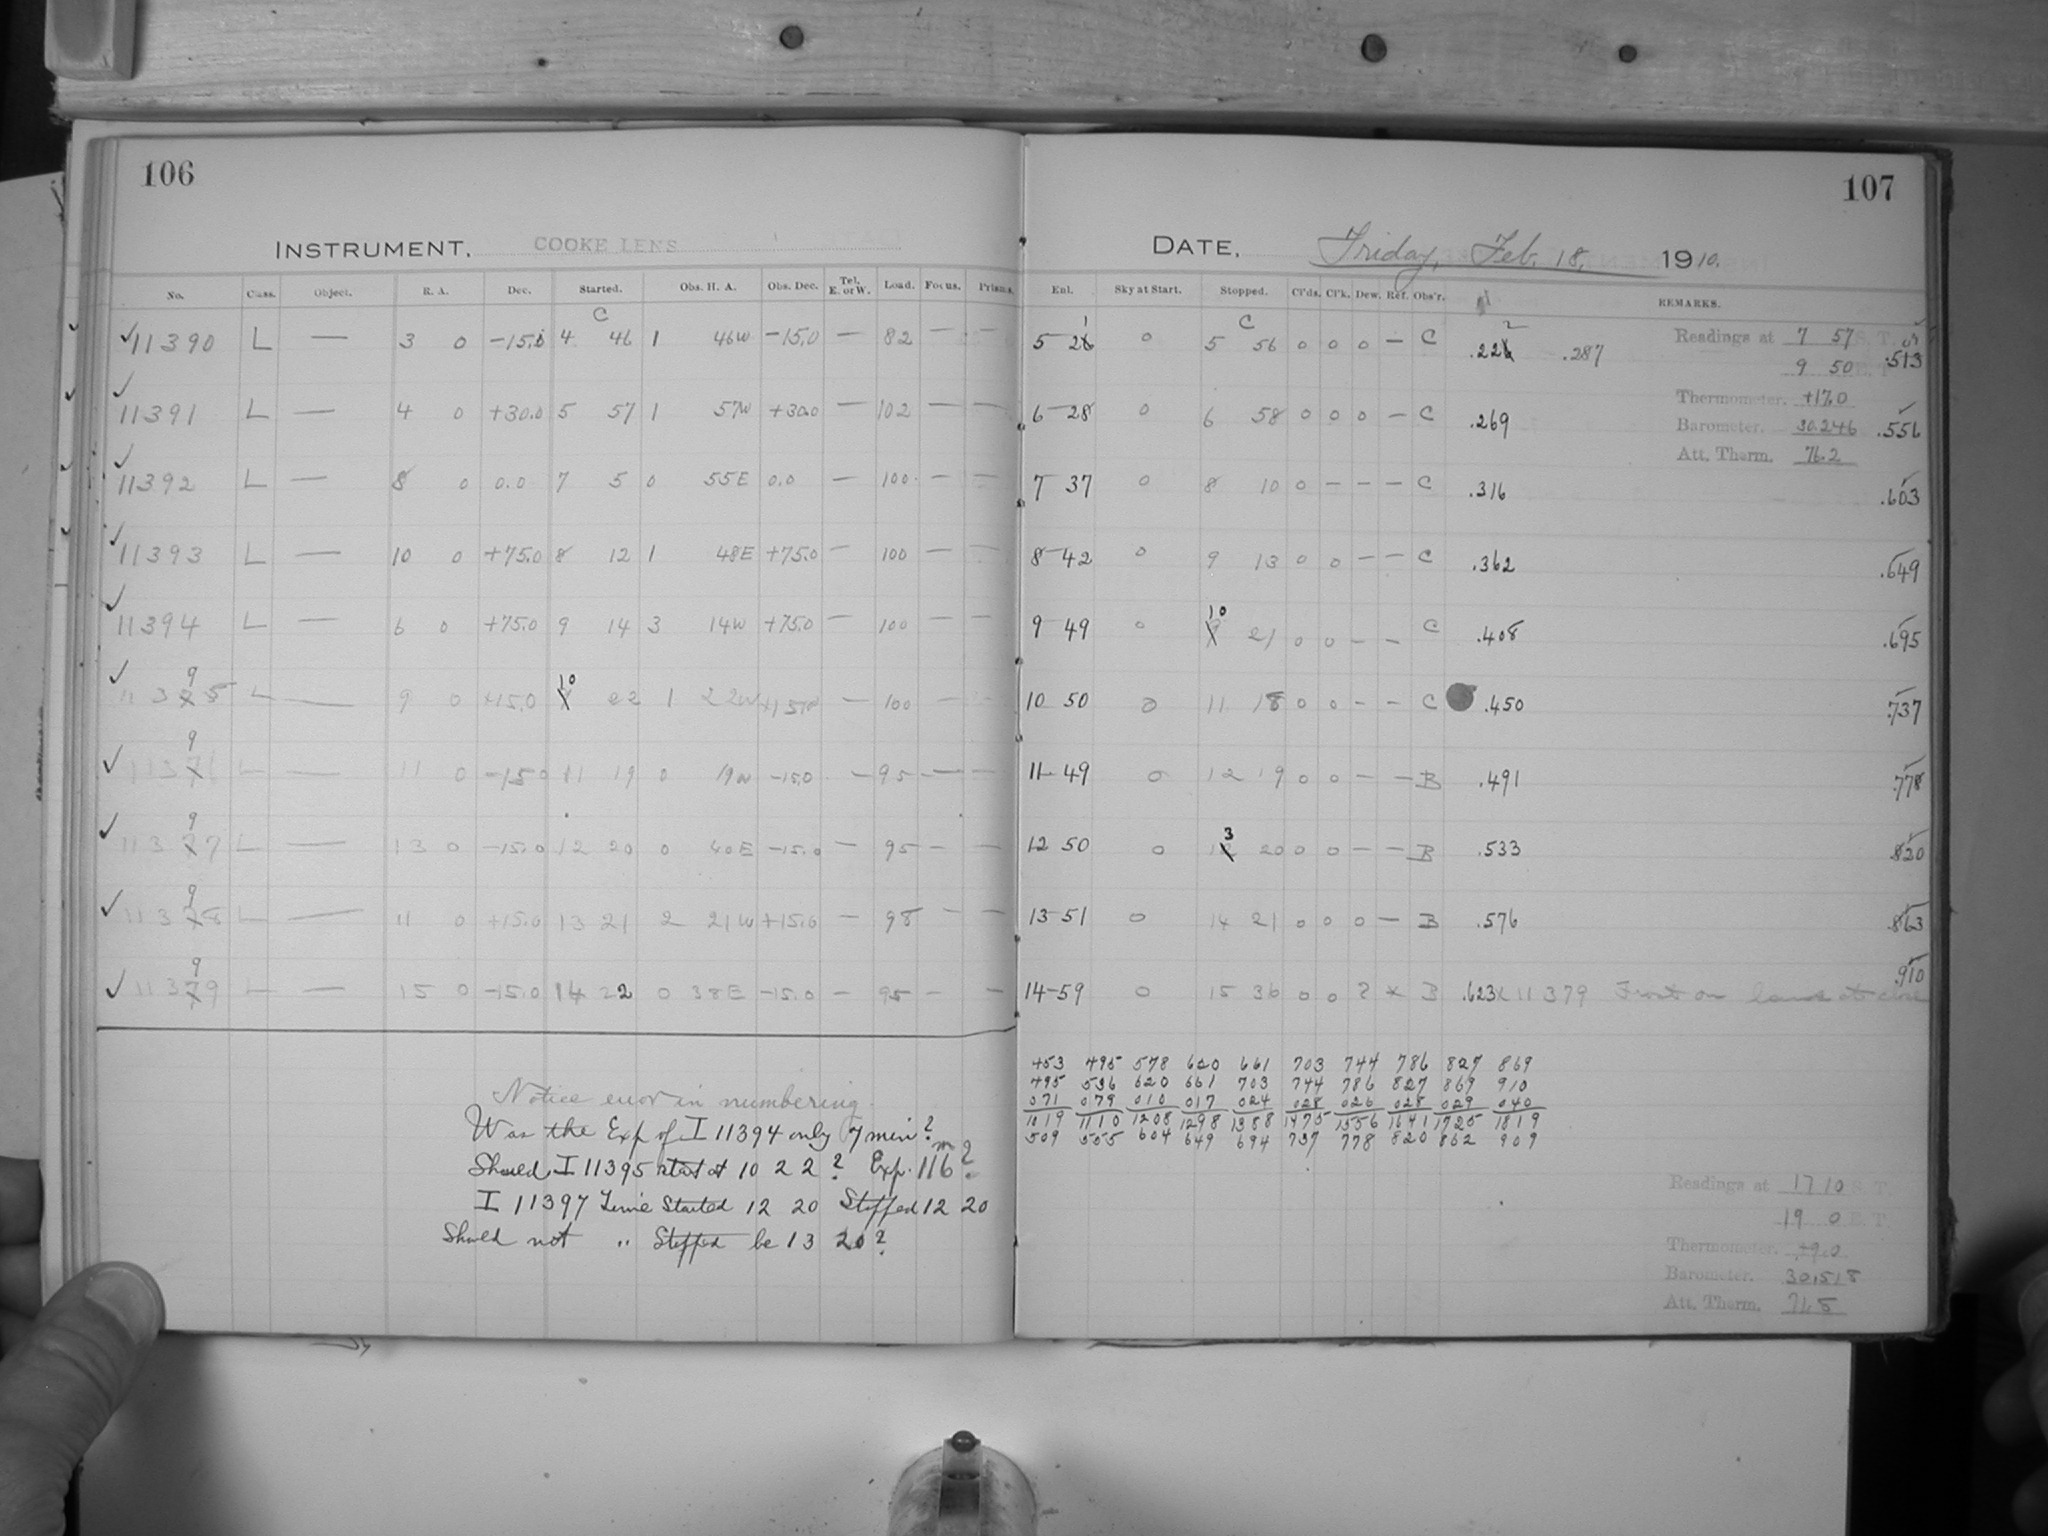 106
INSTRUMENT, COOKE LENS
No. Class. Object. R. A. Dec. Started. Obs. H. A. Obs. Dec. Tel. E. or W. Load. Focus. Prisms.
C
✓11390 L — 3 0 −15.0 4 46 1 46W −15.0 — 82 — —
✓11391 L — 4 0 +30.0 5 57 1 57W +30.0 — 102 — —
✓11392 L — 8 0 0.0 7 5 0 55E 0.0 — 100 — —
✓11393 L — 10 0 +75.0 8 12 1 48E +75.0 — 100 — —
✓11394 L — 6 0 +75.0 9 14 3 14W +75.0 — 100 — —
9 10
✓11375 L — 9 0 +15.0 22 1 22W +15.0 — 100 — —
9
✓11376 L — 11 0 −15.0 11 19 0 19W −15.0 — 95 — —
9
✓11377 L — 13 0 −15.0 12 20 0 40E −15.0 — 95 — —
9
✓11378 L — 11 0 +15.0 13 21 2 21W +15.0 — 98 — —
9
✓11379 L — 15 0 −15.0 14 22 0 38E −15.0 — 95 — —
Notice error in numbering.
Was the Exp of I 11394 only 7 min?
Should I 11395 start at 10 22? Exp. 116 m?
I 11397 Time Started 12 20 Stopped 12 20
Should not " Stopped be 13 20?
107
DATE, Friday, Feb. 18, 1910.
Enl. Sky at Start. Stopped. Cl'ds. Cl'k. Dew. Ref. Obs'r. REMARKS.
1 C 2
5 26 0 5 56 0 0 0 — C .226 .287 Readings at 7 57 S. T. .513
9 50 E. T.
Thermometer. +17.0
6 28 0 6 58 0 0 0 — C .269 Barometer. 30.246 .556
Att. Therm. 76.2
7 37 0 8 10 0 — — — C .316 .603
8 42 0 9 13 0 0 — — C .362 .649
10
9 49 0 9 21 0 0 — — C .408 .695
10 50 0 11 18 0 0 — — C .450 .737
11 49 0 12 19 0 0 — — B .491 .778
3
12 50 0 12 20 0 0 — — B .533 .820
13 51 0 14 21 0 0 0 — B .576 .863
14 59 0 15 36 0 0 ? × B .623 × 11379 Frost on lens at close .910
453 495 578 620 661 703 744 786 827 869
495 536 620 661 703 744 786 827 869 910
071 079 010 017 024 028 026 028 029 040
1019 1110 1208 1298 1388 1475 1556 1641 1725 1819
509 555 604 649 694 737 778 820 862 909
Readings at 17 10 S. T.
19 0 E. T.
Thermometer. +9.0
Barometer. 30.518
Att. Therm. 71.5